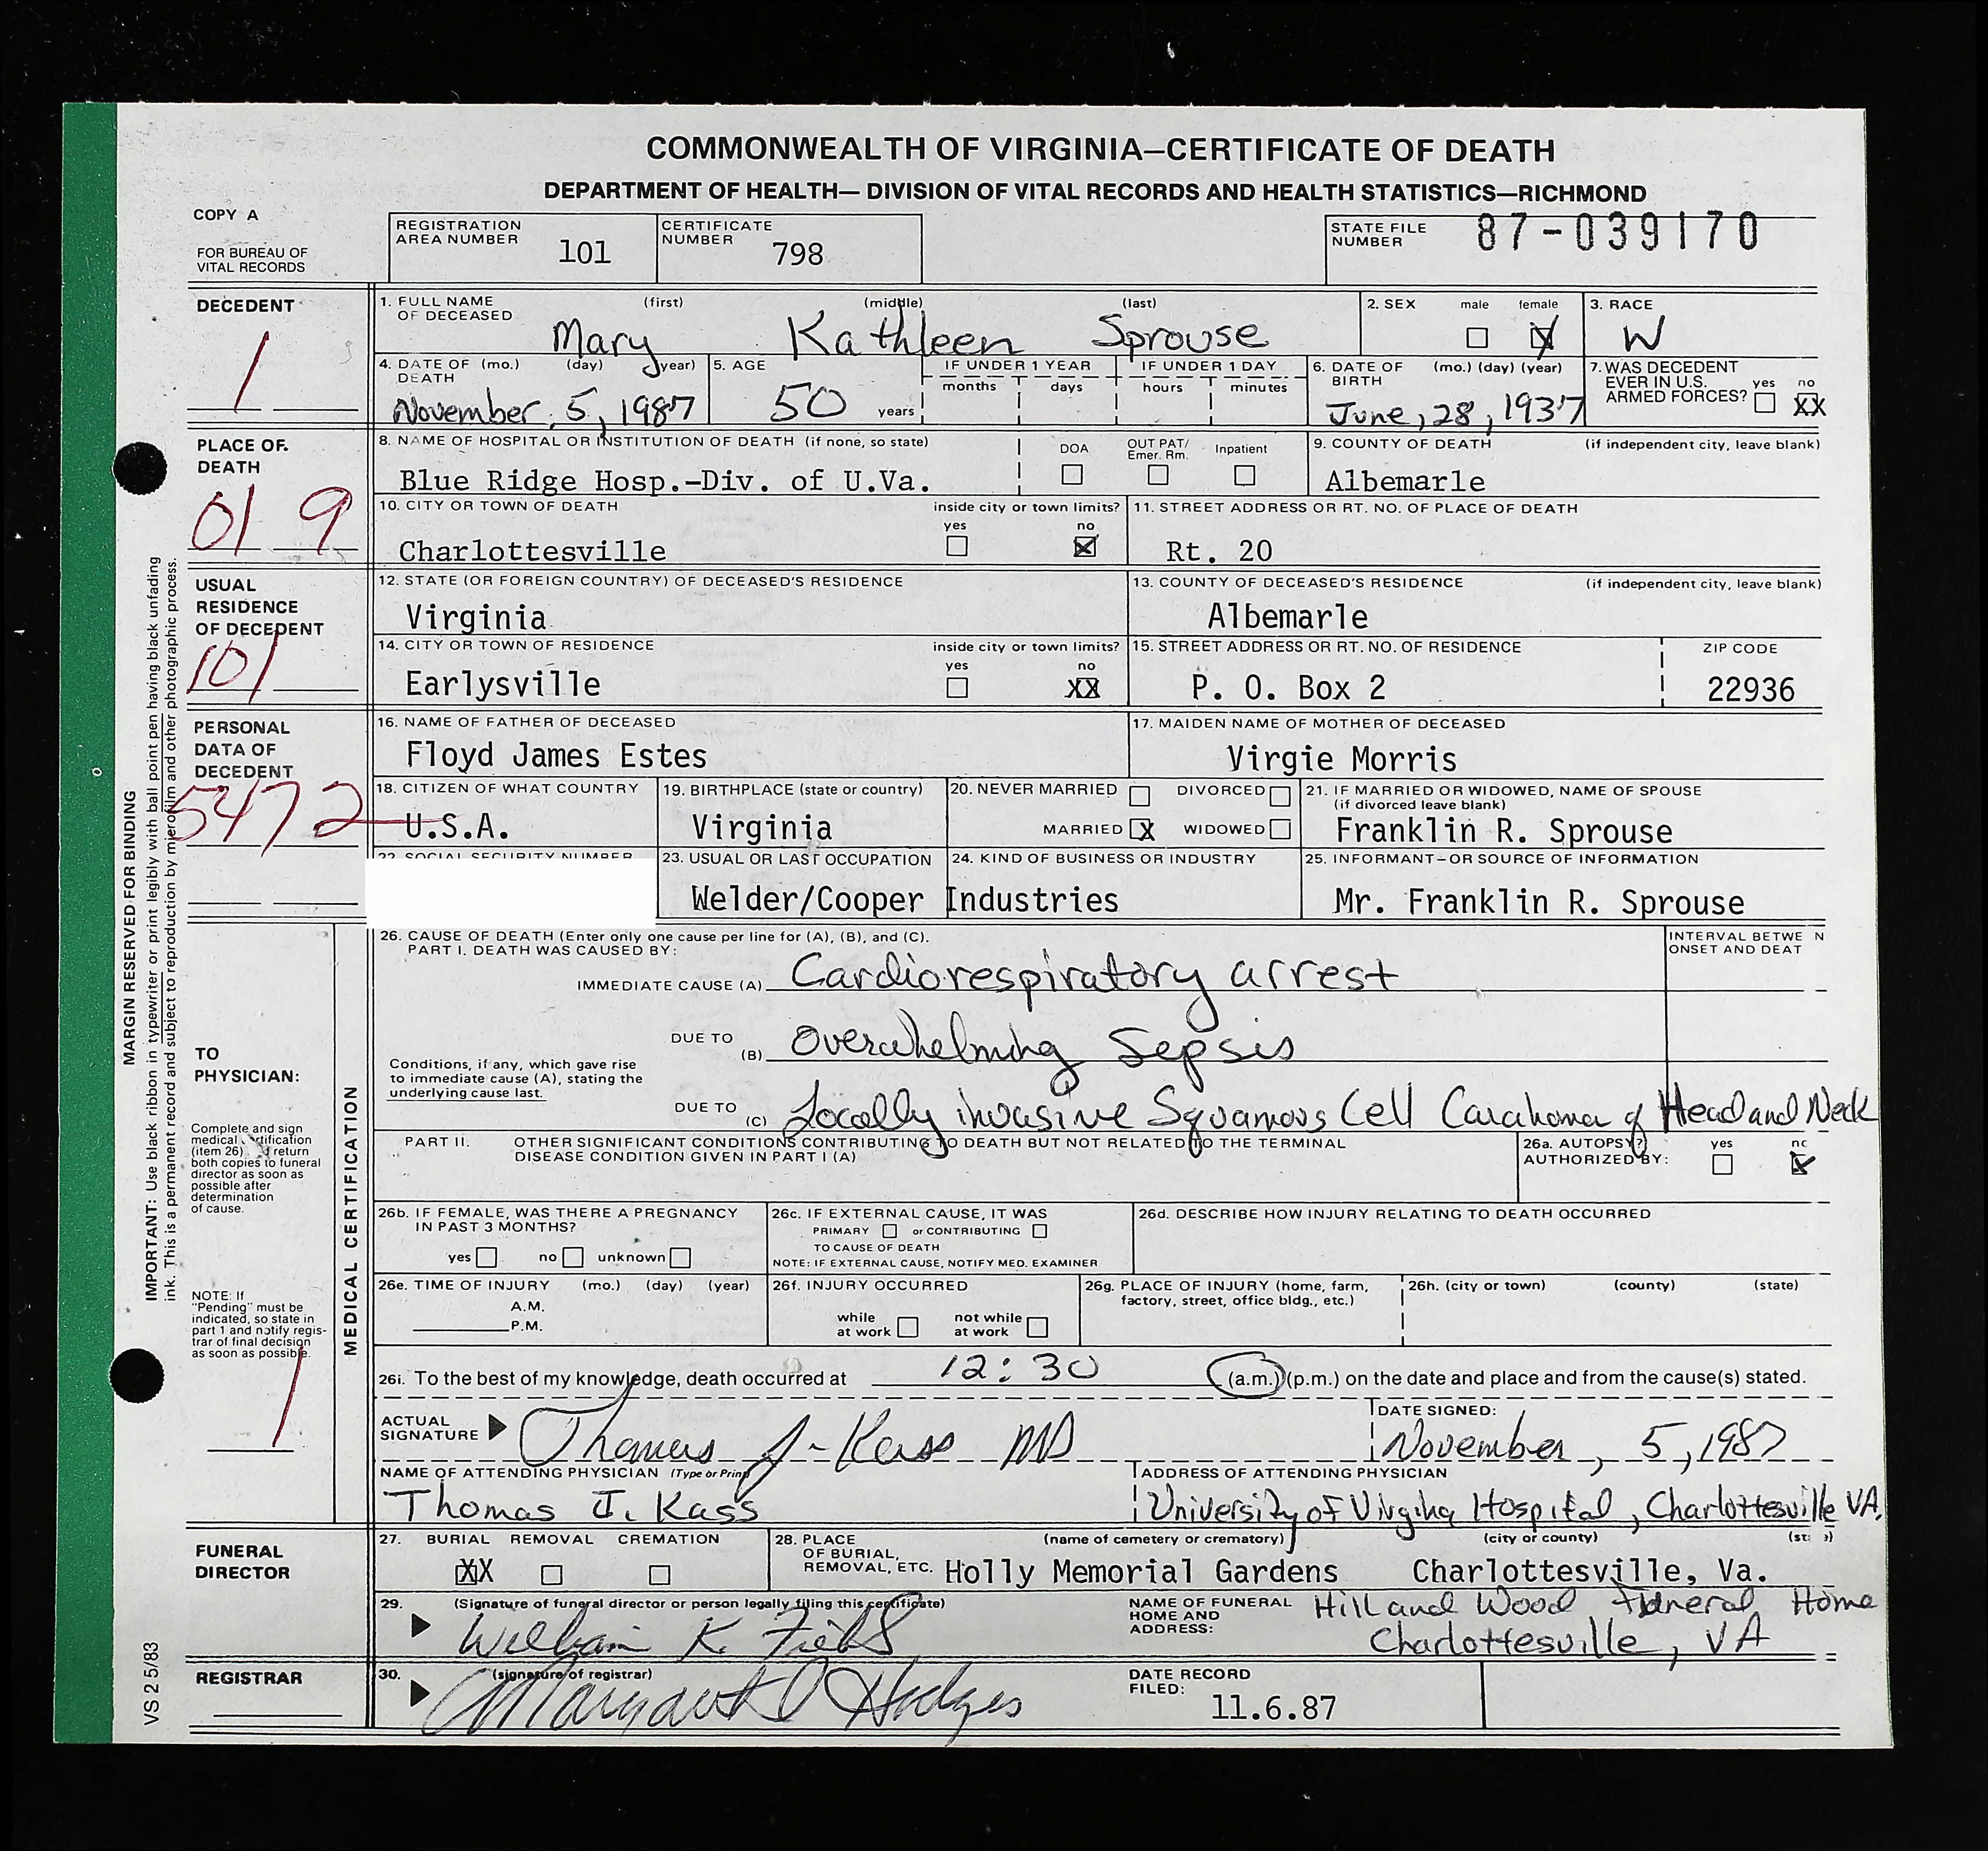 COMMONWEALTH OF VIRGINIA—CERTIFICATE OF DEATH
DEPARTMENT OF HEALTH— DIVISION OF VITAL RECORDS AND HEALTH STATISTICS—RICHMOND
COPY A
FOR BUREAU OF
VITAL RECORDS
REGISTRATION
AREA NUMBER 101
CERTIFICATE
NUMBER 798
STATE FILE
NUMBER 87-039170
DECEDENT
1
1. FULL NAME (first) (middle) (last)
OF DECEASED
Mary Kathleen Sprouse
2. SEX male female
3. RACE
W
4. DATE OF (mo.) (day) (year)
DEATH
November, 5, 1987
5. AGE
50 years
IF UNDER 1 YEAR
months days
IF UNDER 1 DAY
hours minutes
6. DATE OF (mo.) (day) (year)
BIRTH
June, 28, 1937
7. WAS DECEDENT
EVER IN U.S. yes no
ARMED FORCES? XX
PLACE OF
DEATH
01 9
8. NAME OF HOSPITAL OR INSTITUTION OF DEATH (if none, so state)
Blue Ridge Hosp.-Div. of U.Va.
DOA
OUT PAT/
Emer. Rm.
Inpatient
9. COUNTY OF DEATH (if independent city, leave blank)
Albemarle
10. CITY OR TOWN OF DEATH inside city or town limits?
yes no
Charlottesville
11. STREET ADDRESS OR RT. NO. OF PLACE OF DEATH
Rt. 20
USUAL
RESIDENCE
OF DECEDENT
101
12. STATE (OR FOREIGN COUNTRY) OF DECEASED'S RESIDENCE
Virginia
13. COUNTY OF DECEASED'S RESIDENCE (if independent city, leave blank)
Albemarle
14. CITY OR TOWN OF RESIDENCE inside city or town limits?
yes no
Earlysville XX
15. STREET ADDRESS OR RT. NO. OF RESIDENCE ZIP CODE
P. O. Box 2 22936
PERSONAL
DATA OF
DECEDENT
5472
16. NAME OF FATHER OF DECEASED
Floyd James Estes
17. MAIDEN NAME OF MOTHER OF DECEASED
Virgie Morris
18. CITIZEN OF WHAT COUNTRY
U.S.A.
19. BIRTHPLACE (state or country)
Virginia
20. NEVER MARRIED DIVORCED
MARRIED X WIDOWED
21. IF MARRIED OR WIDOWED, NAME OF SPOUSE
(if divorced leave blank)
Franklin R. Sprouse
22. SOCIAL SECURITY NUMBER
23. USUAL OR LAST OCCUPATION
24. KIND OF BUSINESS OR INDUSTRY
Welder/Cooper Industries
25. INFORMANT—OR SOURCE OF INFORMATION
Mr. Franklin R. Sprouse
MARGIN RESERVED FOR BINDING
IMPORTANT: Use black ribbon in typewriter or print legibly with ball point pen having black unfading
ink. This is a permanent record and subject to reproduction by microfilm and other photographic process.
TO
PHYSICIAN:
Complete and sign
medical certification
(item 26) return
both copies to funeral
director as soon as
possible after
determination
of cause.
NOTE: If
"Pending" must be
indicated, so state in
part 1 and notify regis-
trar of final decision
as soon as possible.
1
MEDICAL CERTIFICATION
26. CAUSE OF DEATH (Enter only one cause per line for (A), (B), and (C).
PART I. DEATH WAS CAUSED BY:
INTERVAL BETWE N
ONSET AND DEAT
IMMEDIATE CAUSE (A) Cardiorespiratory arrest
DUE TO
(B) Overwhelming Sepsis
Conditions, if any, which gave rise
to immediate cause (A), stating the
underlying cause last.
DUE TO
(C) Locally invasive Squamous Cell Carcinoma of Head and Neck
PART II. OTHER SIGNIFICANT CONDITIONS CONTRIBUTING TO DEATH BUT NOT RELATED TO THE TERMINAL
DISEASE CONDITION GIVEN IN PART I (A)
26a. AUTOPSY? yes no
AUTHORIZED BY:
26b. IF FEMALE, WAS THERE A PREGNANCY
IN PAST 3 MONTHS?
yes no unknown
26c. IF EXTERNAL CAUSE, IT WAS
PRIMARY or CONTRIBUTING
TO CAUSE OF DEATH
NOTE: IF EXTERNAL CAUSE, NOTIFY MED. EXAMINER
26d. DESCRIBE HOW INJURY RELATING TO DEATH OCCURRED
26e. TIME OF INJURY (mo.) (day) (year)
A.M.
P.M.
26f. INJURY OCCURRED
while
at work
not while
at work
26g. PLACE OF INJURY (home, farm,
factory, street, office bldg., etc.)
26h. (city or town) (county) (state)
26i. To the best of my knowledge, death occurred at 12:30 (a.m.) (p.m.) on the date and place and from the cause(s) stated.
ACTUAL
SIGNATURE Thomas J. Kass MD
DATE SIGNED:
November, 5, 1987
NAME OF ATTENDING PHYSICIAN (Type or Print)
Thomas J. Kass
ADDRESS OF ATTENDING PHYSICIAN
University of Virginia Hospital, Charlottesville VA.
FUNERAL
DIRECTOR
27. BURIAL REMOVAL CREMATION
XX
28. PLACE (name of cemetery or crematory) (city or county)
OF BURIAL,
REMOVAL, ETC. Holly Memorial Gardens Charlottesville, Va.
29. (Signature of funeral director or person legally filing this certificate)
William K. Field
NAME OF FUNERAL
HOME AND
ADDRESS:
Hill and Wood Funeral Home
Charlottesville, VA
VS 2 5/83
REGISTRAR
30. (signature of registrar)
Margaret Hodges
DATE RECORD
FILED: 11.6.87